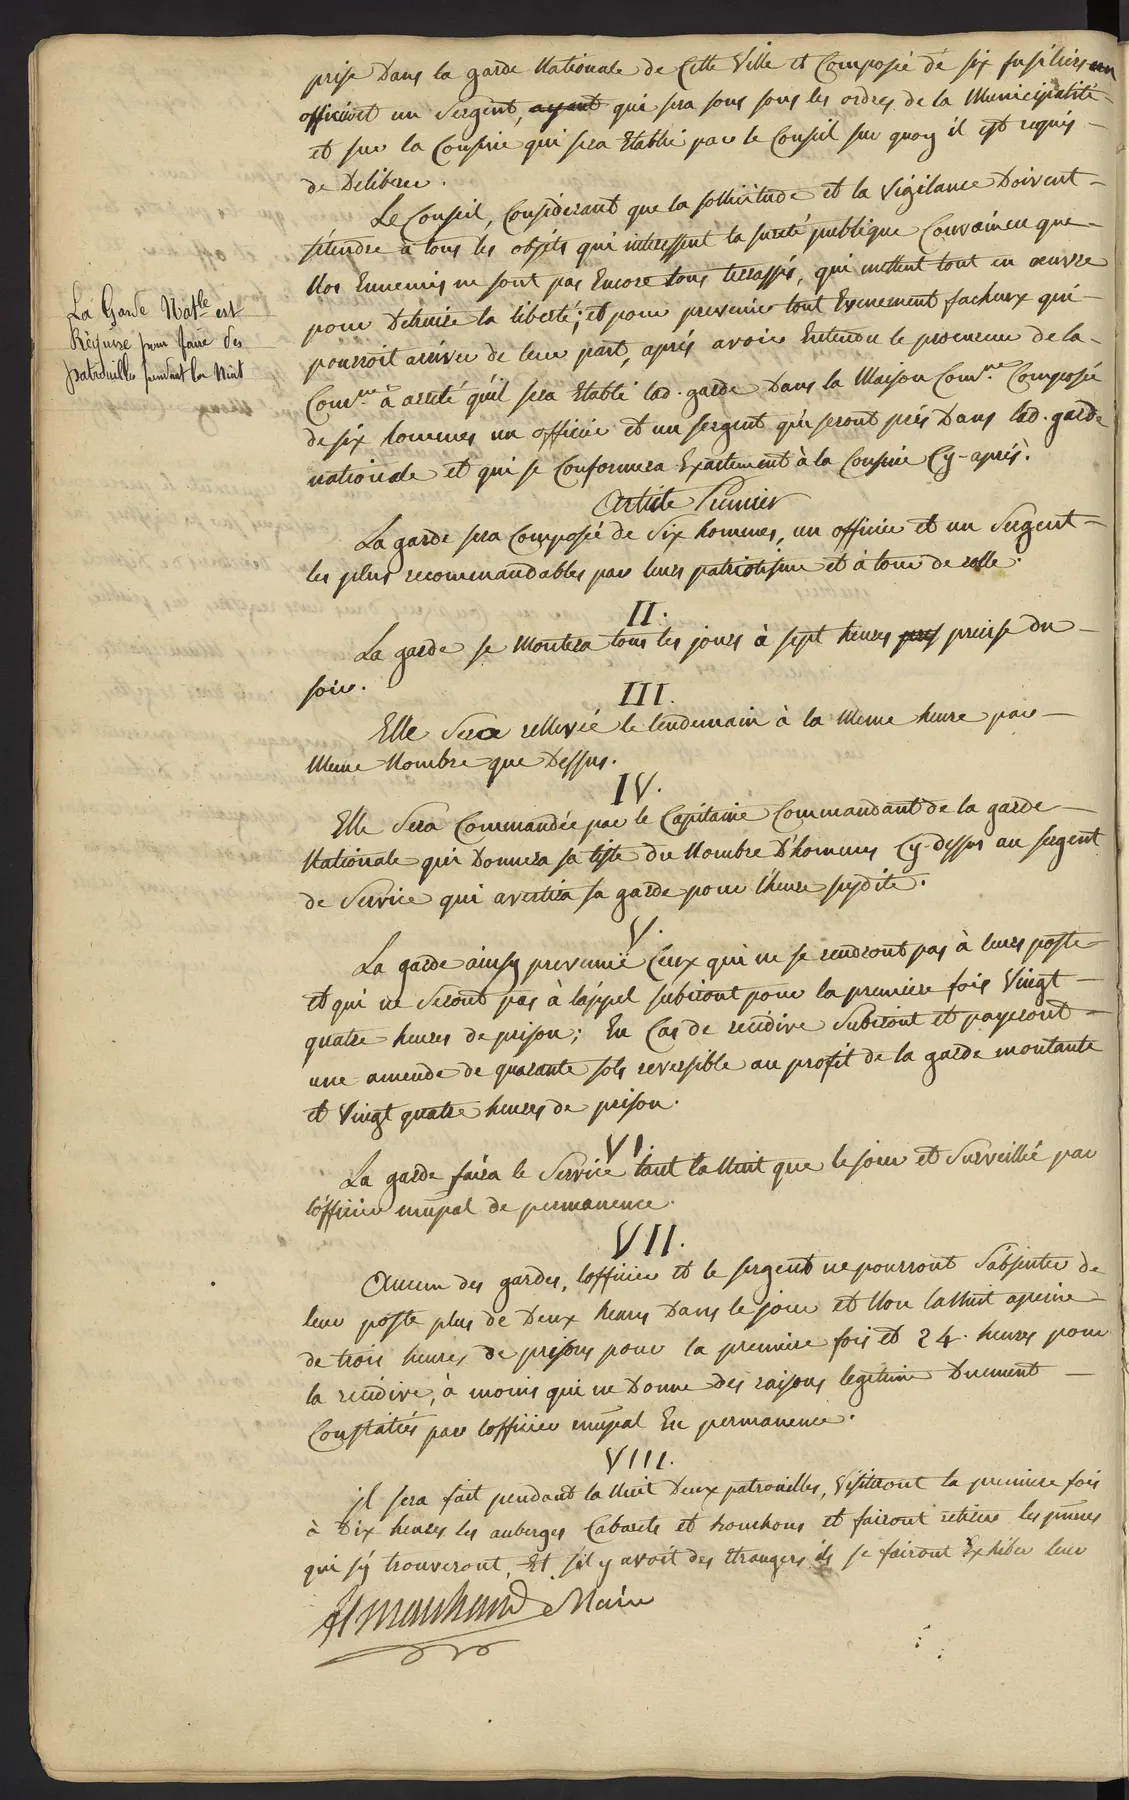 prise Dans la garde Nationale de Cette Ville et Composée de six fusiliers un
officier et un Sergent, ayant qui sera sous sous les ordres de la Municipalité
et sur la Consine qui sera Etabli par le Conseil sur quoy il est requis
de Deliberer.
Le Conseil, Considerant que la sollicitude et la Vigilance Doivent
s'étendre à tous les objets qui interessent la sureté publique Convaincu que
Nos Ennemis ne sont pas Encore tous terrassés, qui mettent tout en œuvre
pour Detruire la liberté; et pour prevenir tout Evenement facheux qui
pourroit arriver de leur part, aprés avoir Entendu le procureur de la
Comne à arreté qu'il sera Etabli lad. garde Dans la Maison Comne. Composée
de six hommes un officier et un sergent qui seront pris Dans lad. garde
nationale et qui se Conformera Exactement à la Consine Cy-aprés.
La Garde Natle est
Réquise pour faire des
patrouilles pendant la Nuit
Article Premier
La garde sera Composée de Six hommes, un officier et un Sergent
les plus recommandables par leurs patriotisme et à tour de rolle.
II.
La garde se Montera tous les jours à sept heures pres precise du
soir.
III.
Elle Sera rellevée le lendemain à la Meme heure par
Meme Nombre que Dessus.
IV.
Elle Sera Commandée par le Capitaine Commandant de la garde
Nationale qui Donnera sa liste du Nombre D'hommes Cy-dessus au sergent
de Service qui avertira sa garde pour l'heure susdite.
V.
La garde ainsy prevenue Ceux qui ne se rendront pas à leurs poste
et qui ne Seront pas à l'appel subiront pour la premiere fois Vingt
quatre heures de prison; En Cas de recidive Subiront et payeront
une amende de quarante sols reversible au profit de la garde montante
et Vingt quatre heures de prison.
VI.
La garde faira le Service tant la Nuit que le jour et Surveillé par
l'officier mupal de permanence.
VII.
Aucun des gardes, l'officier et le sergent ne pourront S'absenter de
leur poste plus de Deux heures Dans le jour et Non la Nuit apeine
de trois heures de prisons pour la premiere fois et 24. heures pour
la recidive, à moins qui ne Donne des raisons legitime Duement
Constatées par l'officier mupal En permanence.
VIII.
il sera fait pendant la Nuit Deux patrouilles, Visiteront la premiere fois
à Dix heures les auberges Cabarets et bouchons et fairont retirer les
qui s'y trouveront, Et s'il y avoit des Etrangers ils se fairont Exhiber leur
Maire